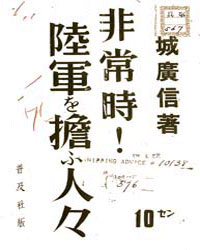 城廣信著
非常時！
陸軍を擔ふ人々
普及社版
10セン
SHIPPING ADVICE
10138
396